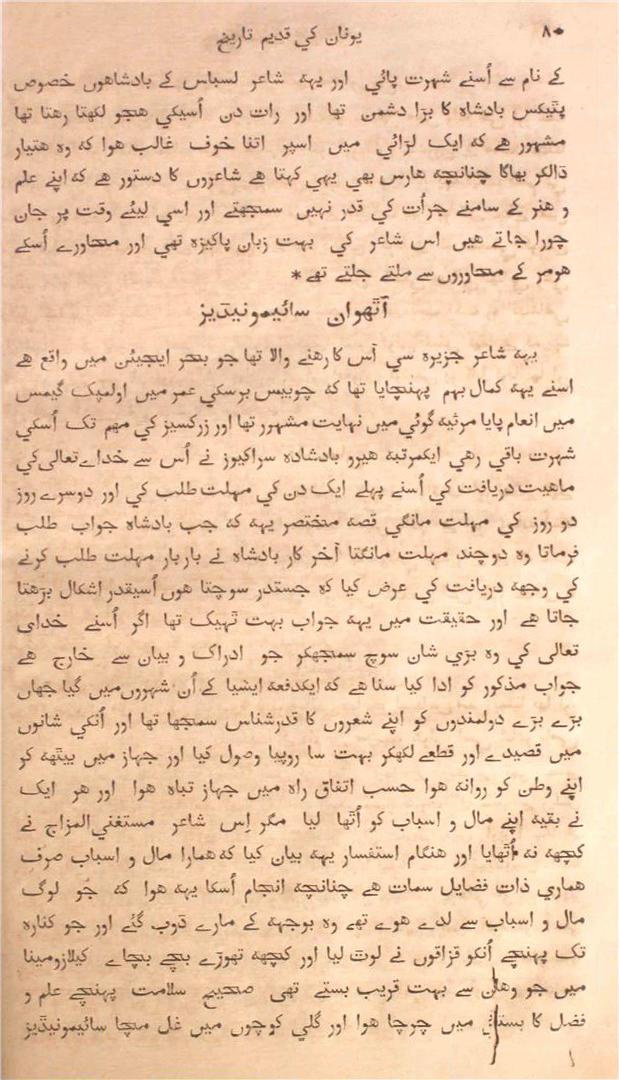 ۸۰ یونان کی قدیم تاریخ
کے نام سے اُسنے شہرت پائی اور یہہ شاعر لسباس کے بادشاھوں خصوص
پٹیکس بادشاہ کا بڑا دشمن تھا اور رات دن اُسیکی ھجو لکھتا رھتا تھا
مشہور ھے کہ ایک لڑائی میں اسپر اتنا خوف غالب ھوا کہ وہ ھتیار
ڈالکر بھاگا چنانچہ ھارس بھی یہی کہتا ھے شاعروں کا دستور ھے کہ اپنے علم
و ھنر کے سامنے جرأت کی قدر نہیں سمجھتے اور اسی لیئے وقت پر جان
چورا جاتے ھیں اس شاعر کی بہت زبان پاکیزہ تھی اور محاورے اُسکے
ھومر کے محاوروں سے ملتے جلتے تھے *
آٹھواں سائیمونیڈیز
یہہ شاعر جزیرہ سی آس کا رھنے والا تھا جو بحر ایجیئن میں واقع ھے
اسنے یہہ کمال بہم پہنچایا تھا کہ چوبیس برسکی عمر میں اولمپک گیمس
میں انعام پایا مرثیہ گوئی میں نہایت مشہور تھا اور زرکسیز کی مہم تک اُسکی
شہرت باقی رھی ایکمرتبہ ھیرو بادشادہ سراکیوز نے اُس سے خداے تعالی کی
ماھیت دریافت کی اُسنے پہلے ایک دن کی مہلت طلب کی اور دوسرے روز
دو روز کی مہلت مانگی قصہ مختصر یہہ کہ جب بادشاہ جواب طلب
فرماتا وہ دوچند مہلت مانگتا آخر کار بادشاہ نے باربار مہلت طلب کرنے
کی وجہہ دریافت کی عرض کیا کہ جسقدر سوچتا ھوں اُسیقدر اشکال بڑھتا
جاتا ھے اور حقیقت میں یہہ جواب بہت ٹہیک تھا اگر اُسنے خدای
تعالی کی وہ بڑی شان سوچ سمجھکر جو ادراک و بیان سے خارج ھے
جواب مذکور کو ادا کیا سنا ھے کہ ایکدفعہ ایشیا کے اُن شہروں میں گیا جہاں
بڑے بڑے دولمندوں کو اپنے شعروں کا قدرشناس سمجھا تھا اور اُنکی شانوں
میں قصیدے اور قطعے لکھکر بہت سا روپیا وصول کیا اور جہاز میں بیٹھہ کو
اپنے وطن کو روانہ ھوا حسب اتفاق راہ میں جہاز تباہ ھوا اور ھر ایک
نے بقیہ اپنے مال و اسباب کو اُٹھا لیا مگر اِس شاعر مستغنی المزاج نے
کچھہ نہ اُٹھایا اور ھنگام استفسار یہہ بیان کیا کہ ھمارا مال و اسباب صرف
ھماری ذات فضایل سمات ھے چنانچہ انجام اُسکا یہہ ھوا کہ جو لوگ
مال و اسباب سے لدے ھوے تھے وہ بوجہہ کے مارے ڈوب گئے اور جو کنارہ
تک پہنچے اُنکو قزاقوں نے لوٹ لیا اور کچھہ تھوڑے بچے بچاے کیلازومینا
میں جو وھاں سے بہت قریب بستے تھی صحیح سلامت پہنچے علم و
فضل کا بستی میں چرچا ھوا اور گلی کوچوں میں غل مچا سائیمونیڈیز